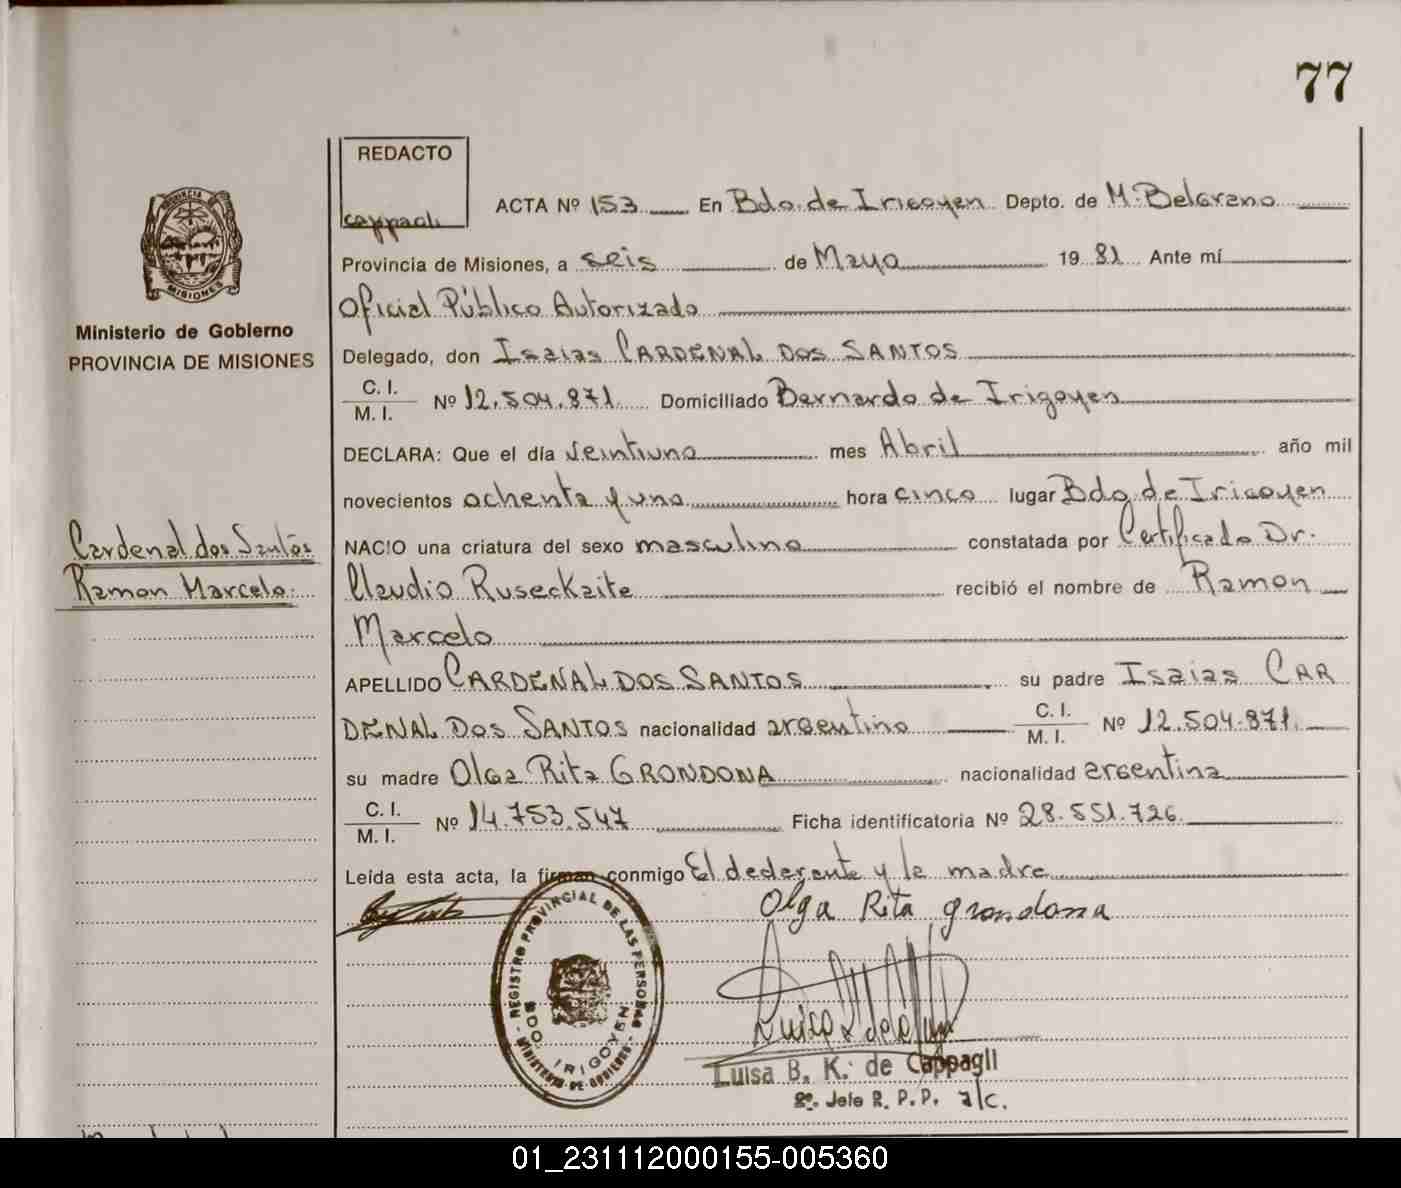 77
REDACTO
cappagli
ACTA Nº 153 En Bdo. de Irigoyen Depto. de M. Belgrano
Provincia de Misiones, a seis de Mayo 19 81 Ante mí
Oficial Público Autorizado
Delegado, don Isaias CARDENAL DOS SANTOS
C. I.
M. I. Nº 12.504.871 Domiciliado Bernardo de Irigoyen
DECLARA: Que el día veintiuno mes Abril año mil
novecientos ochenta y uno hora cinco lugar Bdo. de Irigoyen
NACIO una criatura del sexo masculino constatada por Certificado Dr.
Claudio Ruseckaite recibió el nombre de Ramon
Marcelo
APELLIDO CARDENAL DOS SANTOS su padre Isaias CAR
DENAL DOS SANTOS nacionalidad argentino C. I.
M. I. Nº 12.504.871.
su madre Olga Rita GRONDONA nacionalidad argentina
C. I.
M. I. Nº 14.753.547 Ficha identificatoria Nº 28.551.726.
Leída esta acta, la firman conmigo El declarante y la madre
Olga Rita grondona
REGISTRO PROVINCIAL DE LAS PERSONAS
BDO. IRIGOYEN
MINISTERIO DE GOBIERNO
Luisa B. K. de Cappagli
2º. Jefe R. P. P. a/c.
PROVINCIA DE
MISIONES
Ministerio de Gobierno
PROVINCIA DE MISIONES
Cardenal dos Santos
Ramon Marcelo
01_231112000155-005360